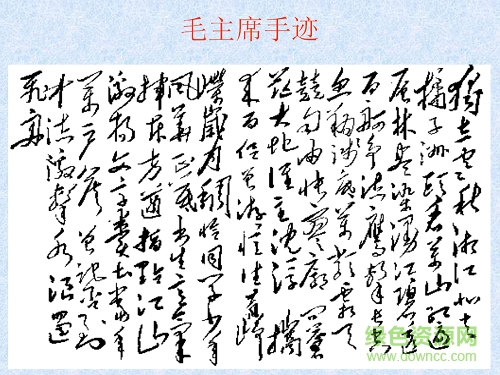 毛主席手迹
独立寒秋湘江北去
橘子洲頭看萬山红遍
层林尽染漫江碧透
百舸争流鹰擊长空
鱼翔浅底萬类霜天
競自由怅寥廓问苍
茫大地谁主沈浮携
来百侣曾游忆往昔峥
嵘歲月稠恰同学少年
风華正茂书生意氣
挥斥方遒指點江山
激揚文字粪土当年
萬户侯曾记否到
中流擊水浪遏
飛舟
绿色资源网
www.downcc.com